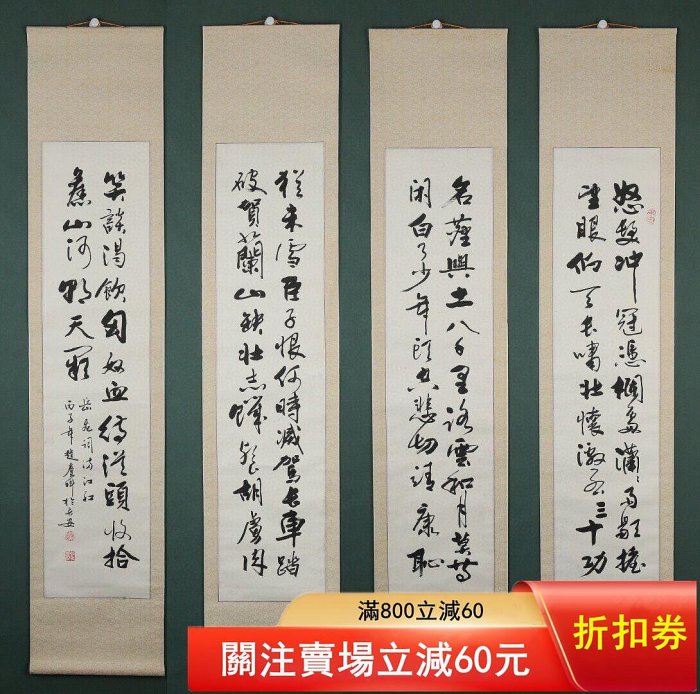 怒髮冲冠憑欄處瀟瀟雨歇擡
望眼仰天長嘯壯懷激烈三十功
名塵與土八千里路雲和月莫等
閑白了少年頭空悲切靖康恥
猶未雪臣子恨何時滅駕長車踏
破賀蘭山缺壯志饑餐胡虜肉
笑談渴飲匈奴血待從頭收拾
舊山河朝天闕
岳飛詞滿江紅
丙子年趙於長安
滿800立減60
關注賣場立減60元
折扣券